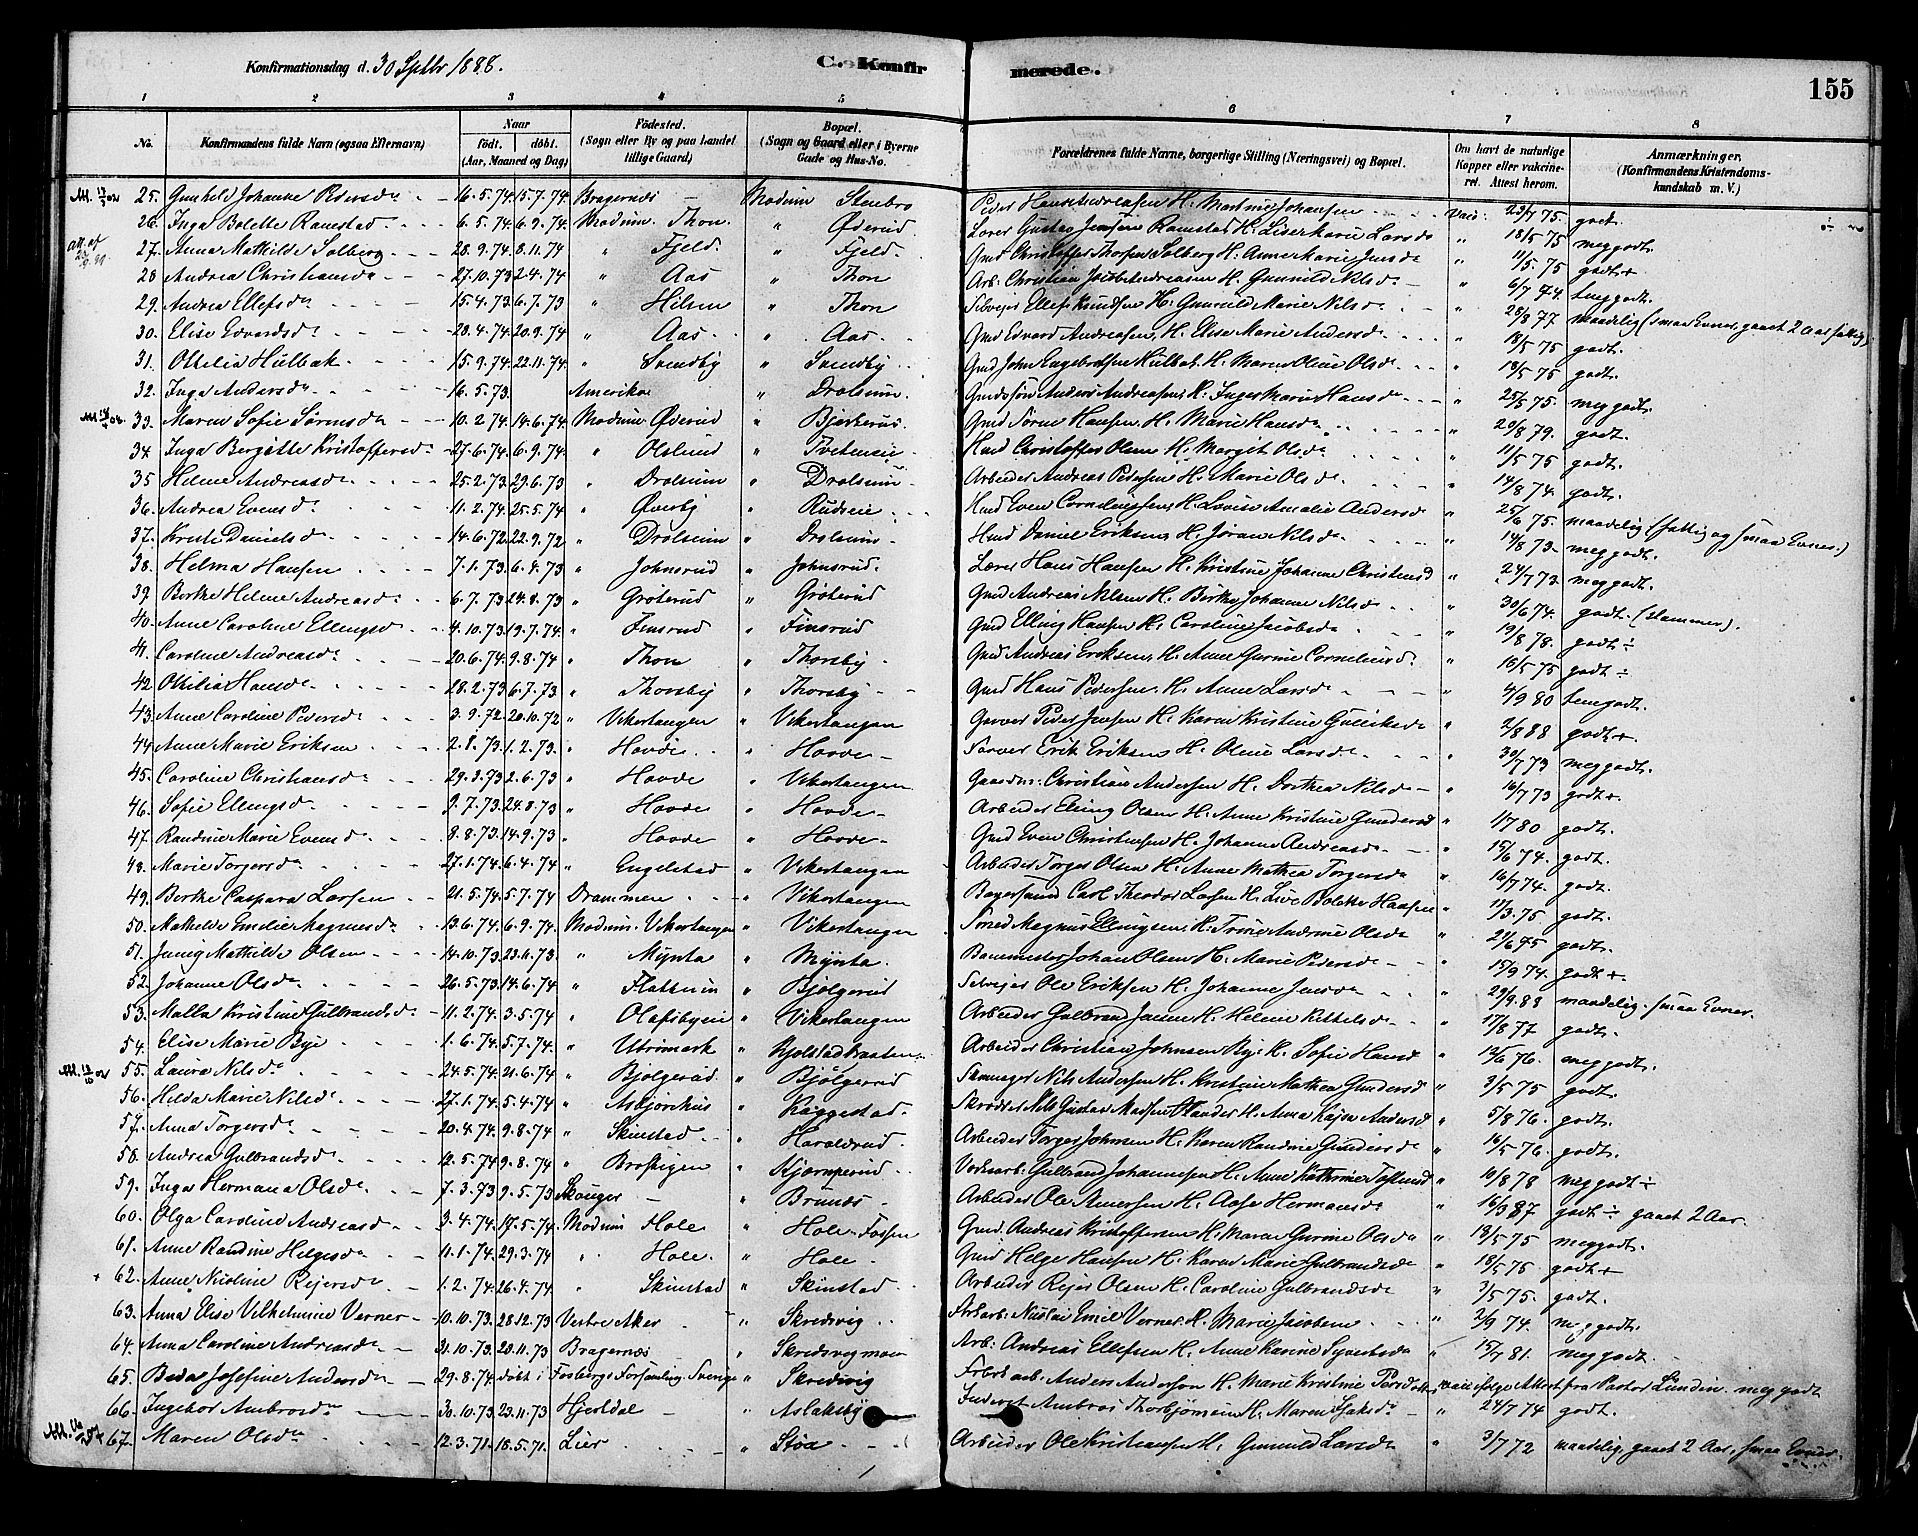 Konfirmationsdag d. 30 Septbr 1888.
C. Konfirmerede.
155
1 2 3 4 5 6 7 8
No. Konfirmandens fulde Navn (ogsaa Efternavn) Naar født. døbt. (Aar, Maaned og Dag) Födested. (Sogn eller By og paa Landet tillige Gaard) Bopæl. (Sogn og Gaard eller i Byerne Gade og Hus-No. Forældrenes fulde Navne, borgerlige Stilling (Næringsvei) og Bopæl. Om havt de naturlige Kopper eller vakcineret. Attest herom. Anmærkninger. (Konfirmandens Kristendomskundskab m. V.)
25. Gunhild Johanne Pedersd. 16.5.74. 15.7.74 Bragernes Modum Stenbro Vacc. 23/7 75. godt.
26. Inga Bolette Ramstad 6.5.74. 6.9.74. Modum Thon " Øderud Lærer Gustav Jensen Ramstad H. Lise Marie Larsd. " 18/5 75 meg godt.
27. Anna Mathilde Solberg 28.9.74 8.11.74 " Fjeld. " Fjeld. Gmd Christoffer Thorsen Solberg H. Anne Marie Jensd. " 11/5.75 godt+
28 Andrea Christiansd. 27.10.73 2.4.74 " Aas " Thon Arb. Christian Jacob Andreasen H. Gunnild Nilsd. " 6/7 74. temgodt.
29. Andrea Ellefsd. 15.4.73. 6.7.73 " Helsen " Thon Selvejer Ellef Knudsen H. Gunnild Marie Nilsd. " 28/8 77 maadelig (smaa Evner, gaaet 2 Aar, fattig)
30. Elise Edvardsd. 28.4.74. 20.9.74 " Aas " Aas Gmd Edvard Andreasen, H. Elise Marie Andersd. " 18/5 75 godt.
31. Othelia Hulbak 15.9.74. 22.11.74 " Svendby " Svendby Gmd John Engebretsen Hulbak H. Maren Oline Olsd. " 18/5 75 godt.
32. Inga Andersd. 16.5.73. Amerika " Drolsum. Gmdssøn Anders Andreasen H. Inger Marie Hansd. " 25/5 75. meg godt.
33. Maren Sofie Sørensd. 10.2.74. 14.6.74. Modum Øderud " Bjerkerus. Gmd Søren Hansen, H. Marie Hansd. " 20/8 79. godt.
34. Inga Bergitte Kristoffersd. 27.6.74. 6.9.74. " Olslund " Tveteneie Hmd Christoffer Olsen H. Margit Olsd. " 11/5 75 godt.
35 Helene Andreasd. 25.2.73. 29.6.73 " Drolsum " Drolsum Arbeider Andreas Pedersen H. Marie Olsd. " 14/8 74. godt.
36. Andrea Evensd. 11.2.74. 25.5.74 " Øverby " Rudseie Hmd Even Corneliussen, H. Lovise Amalie Andersd. " 25/6 75. maadelig (fattig og smaa Evner.)
37. Kristi Danielsd. 14.6.72. 22.9.72 " Drolsum " Drolsum Hmd Daniel Eriksen, H. Jøran Nilsd. " 14/8 73 meg godt.
38. Helma Hansen 7.1.73. 6.4.73 " Johnsrud " Johnsrud. Lærer Hans Hansen H. Kristine Johanne Christensd. " 24/7 73 meg godt.
39. Berthe Helene Andreasd. 6.7.73 24.8.73 " Grøterud " Grøterud Gmd Andreas Nilsen H. Berthe Johanne Nilsd. " 30/6 74. godt. (stammer).
40. Anne Caroline Ellingsd. 4.10.73. 19.7.74. " Finsrud " Finsrud Gmd Elling Hansen H. Caroline Jacobsd. " 19/8 78. godt ÷
41. Caroline Andreasd. 20.6.74. 9.8.74 " Thon " Thorsby Gmd Andreas Eriksen, H. Anne Gurine Corneliusd. " 16/5 75 godt ÷
42 Othilia Hansd. 28.2.73 6.7.73 " Thorsby " Thorsby Gmd Hans Pedersen, H. Anne Larsd. " 4/9 80 temgodt.
43. Anne Caroline Pedersd. 3.9.72. 20.10.72 " Vikertangen " Vikertangen Garver Peder Jensen H. Karen Kristine Gulliksd. " 2/8 88 godt+.
44. Anne Marie Eriksen 2.1.73. 1.2.73. " Hovde " Hovde Farver Erik Eriksen H. Oline Larsd. " 30/7 73 meg godt.
45. Caroline Christiansd. 29.3.73 2.6.73 " Hovde " Vikertangen Gaardm. Christian Andersen H. Dorthea Nilsd. " 16/7 73 godt+.
46. Sofie Ellingsd. 9.7.73. 24.8.73 " Hovde " Hovde Arbeider Elling Olsen H. Anne Kristine Gundersd. " 1/7 80 godt.
47. Randine Marie Evensd. 8.8.73. 14.9.73 " Hovde " Hovde Gmd Even Christensen H. Johanne Andreasd. " 15/6 74. godt.
48. Marie Torgersd. 27.1.74. 6.4.74 " Engelstad " Vikertangen Arbeider Torger Olsen H. Anne Mathea Torgersd. " 16/7 74. godt.
49. Berthe Caspara Larsen 21.5.74 5.7.74 Drammen " Vikertangen Bøgersvend Carl Theodor Larsen H. Live Bolette Hansen " 17/3.75 godt.
50. Mathilde Emilie Magnusd. 13.6.74. 6.9.74 Modum. Vikertangen " Vikertangen Smed Magnus Ellingsen, H. Trine Andrine Olsd. " 21/6 75 godt.
51. Jenny Mathilde Olsen 14.10.73. 23.11.73. " Mynta " Mynta. Banemester Johan Olsen H. Marie Pedersd. " 15/9 74. godt+
52. Johanne Olsd. 26.5.73. 14.6.74 " Flattum " Bjølgerud Selvejer Ole Eriksen H. Johanne Jensd. " 29/9.88 maadelig. smaa Evner.
53. Malla Kristine Gulbrandsd. 11.2.74. 3.5.74 " Olafsbyeie " Vikertangen Arbeider Gulbrand Jansen H. Helene Kittelsd. " 17/8 77 godt.
54. Elise Marie Bye 1.6.74. 5.7.74. " Utrimark " Gjolstadbraaten Arbeider Christian Johnsen Bye H. Sofie Hansd. " 19/6 76. meg godt.
55. Laura Nilsd. 24.5.74. 21.6.74 " Bjølgerud " Bjølgerud Nils Andersen H. Kristine Mathea Gundersd. " 3/5 75 godt.
56. Hilda Marie Nilsd. 27.1.74. 5.4.74 " Asbjørnhus " Kaggestad. Skrædder Nils Gustav Madsen H. Anna Kajsa Andersd. " 5/8 76. godt.
57. Anna Torgersd. 20.4.74. 9.8.74 " Skinstad " Haraldrud. Arbeider Torger Johnsen H. Karen Randine Gundersd. " 16/5 76. godt.
58. Andrea Gulbrandsd. 12.5.74 9.8.74 " Brostigen " Kjørnperud Gulbrand Johannesen H. Anne Kathrine Toftensd. " 10/8 78 meg godt ÷
59. Inga Hermana Olsd. 7.3.73. 9.5.73 Skouger " Brunes Arbeider Ole Amersen H. Aase Hermansd. " 16/3 87 godt ÷ gaaet 2 Aar.
60. Olga Caroline Andreasd. 3.4.74. 17.5.74. Modum Hole " Hole-Fossen Gmd. Andreas Kristoffersen H. Maren Gurine Olsd. " 18/5 75 meg godt.
61. Anne Randine Helgesd. 11.1.74. 29.3.74 " Hole. " Hole Gmd Helge Hansen H. Karen Marie Gulbrandsd. " 18/5 75. godt+
+ 62. Anne Nicoline Rejersd. 1.2.74. 26.4.74 " Skinstad " Skinstad Arbeider Rejer Olsen H. Caroline Gulbrandsd. " 3/5 75. godt.
63. Anna Elise Vilhelmine Verner 10.10.73 28.12.73 Vestre Aker " Skredsvig Nicolai Emil Verner H. Marie Jacobsen " 2/9 74. meg godt.
64. Anna Caroline Andreasd. 31.10.73 20.11.73 Bragernes " Skredsvigmoen Arb. Andreas Ellefsen H. Anne Karine Syvertsd. " 15/7 81. meg godt.
65. Beda Josefine Andersd. 29.8.74 døbt i Fosbergs Forsamling Sverige " Skredsvig Anders Andersson H. Marie Kristine Persdotter vacc. ifølge Attest fra Pastor Lundin. meg godt
66. Ingebor Ambrosd. 30.10.73 23.11.73 Hjertdal " Aslaksby Inderst Ambros Thorbjørnsen H. Maren Isaksd. " 24/7 74 godt.
67. Maren Olsd. 12.3.71. 18.5.71. Lier " Støa Arbeider Ole Kristiansen H. Gunnild Larsd. " 3/7 72 maadelig, gaaet 2 Aar, smaa Evner.